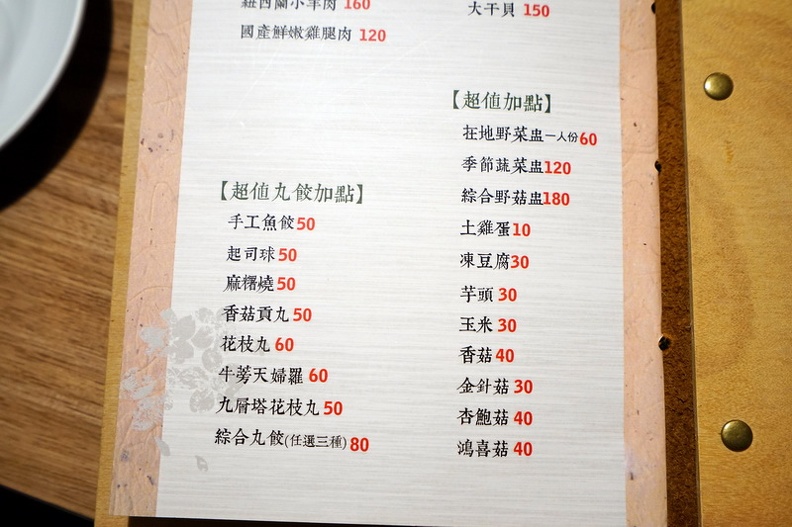 紐西蘭小羊肉 160
國產鮮嫩雞腿肉 120
【超值丸餃加點】
手工魚餃 50
起司球 50
麻糬燒 50
香菇貢丸 50
花枝丸 60
牛蒡天婦羅 60
九層塔花枝丸 50
綜合丸餃(任選三種) 80
大干貝 150
【超值加點】
在地野菜盅一人份 60
季節蔬菜盅 120
綜合野菇盅 180
土雞蛋 10
凍豆腐 30
芋頭 30
玉米 30
香菇 40
金針菇 30
杏鮑菇 40
鴻喜菇 40